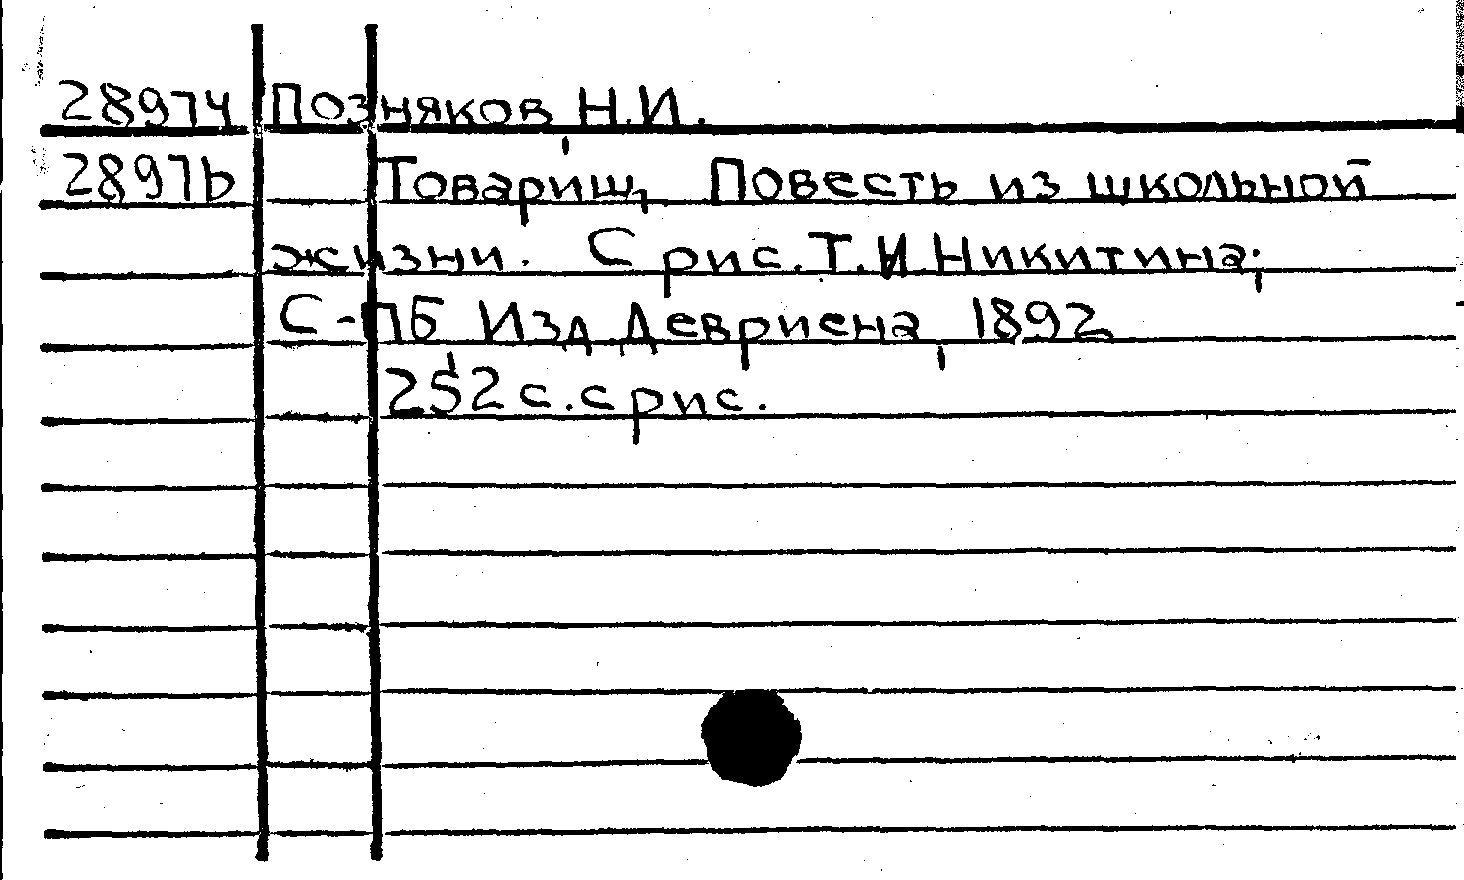 2897Ч Позняков, Н.И.
2897Ь Товарищ, Повесть из школьной
жизни. С рис. Т.И. Никитина;
С-ПБ Изд. Девриена, 1892,
252 с. с рис.